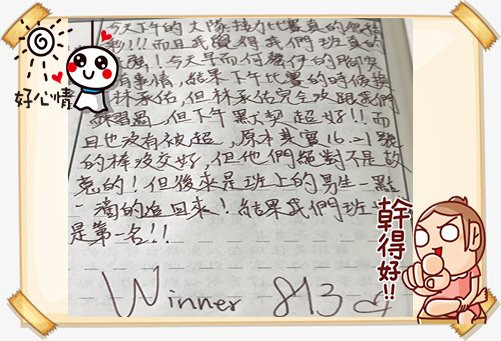 今天下午的大隊接力比賽真的很精
!!!而且我覺得我們班真的
!今天早而何
事情,結果下午比賽的時候換
林承佑,但林承佑完全沒跟我們
練習過,但下午默契超好!!而
且也沒有被超,原本其實16.21號
的棒沒交好,但他們絕對不是故
意的!但後來是班上的男生一點
一滴的追回來!結果我們班
是第一名!!
Winner 813
好心情
幹得好!!